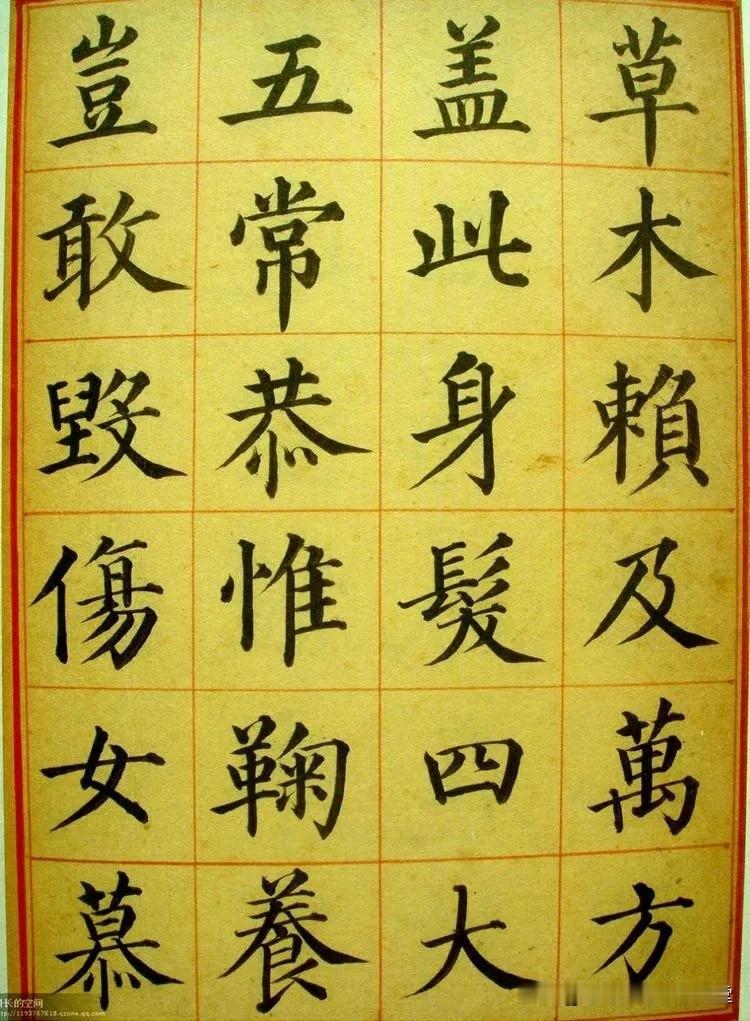 草木賴及萬方
盖此身髮四大
五常恭惟鞠養
豈敢毀傷女慕
长的空间
http://1193767618.qzone.qq.com